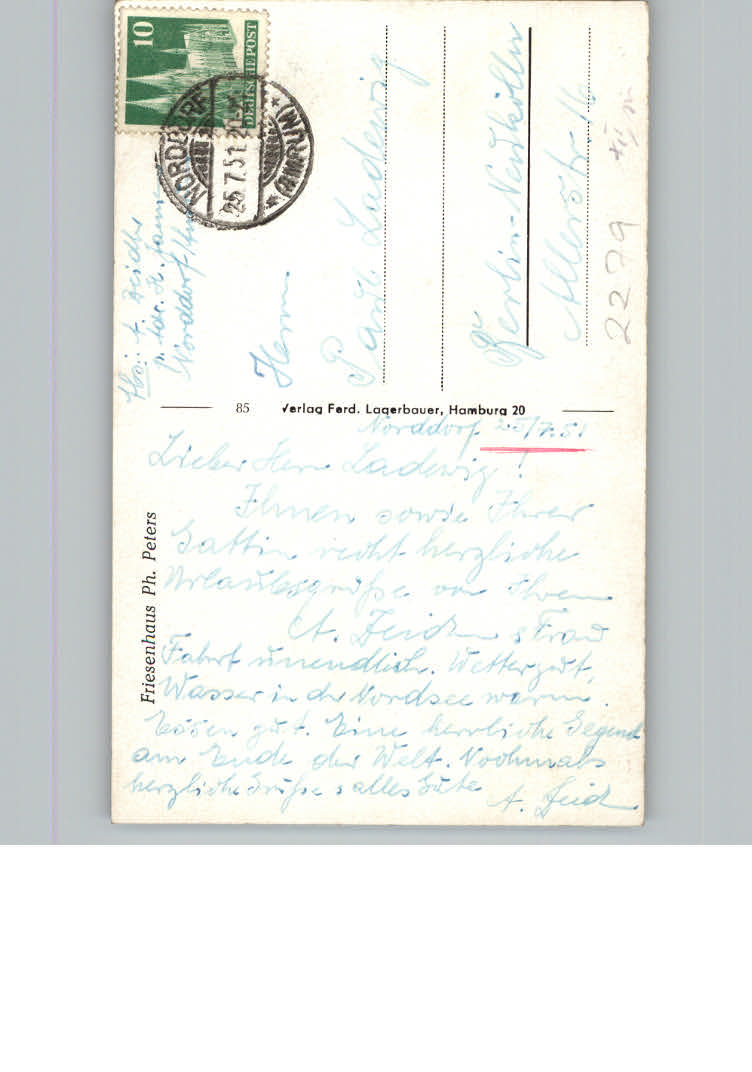 10
DEUTSCHE POST
NORDDORF
25.7.51
(AMRUM)
Norddorf
Herrn
Paul Ladewig
Berlin-Neukölln
Allerstr. 16
2279
85
Verlag Ferd. Lagerbauer, Hamburg 20
Friesenhaus Ph. Peters
Norddorf 25/7.51
Lieber Herr Ladewig!
Ihnen sowie Ihrer
Gattin recht herzliche
Urlaubsgrüße von Ihrem
A. u. Frau
Fahrt unendlich. Wetter gut,
Wasser in der Nordsee warm.
Essen gut. Eine herrliche Gegend
am Ende der Welt. Nochmals
herzliche Grüße u alles Gute
A.